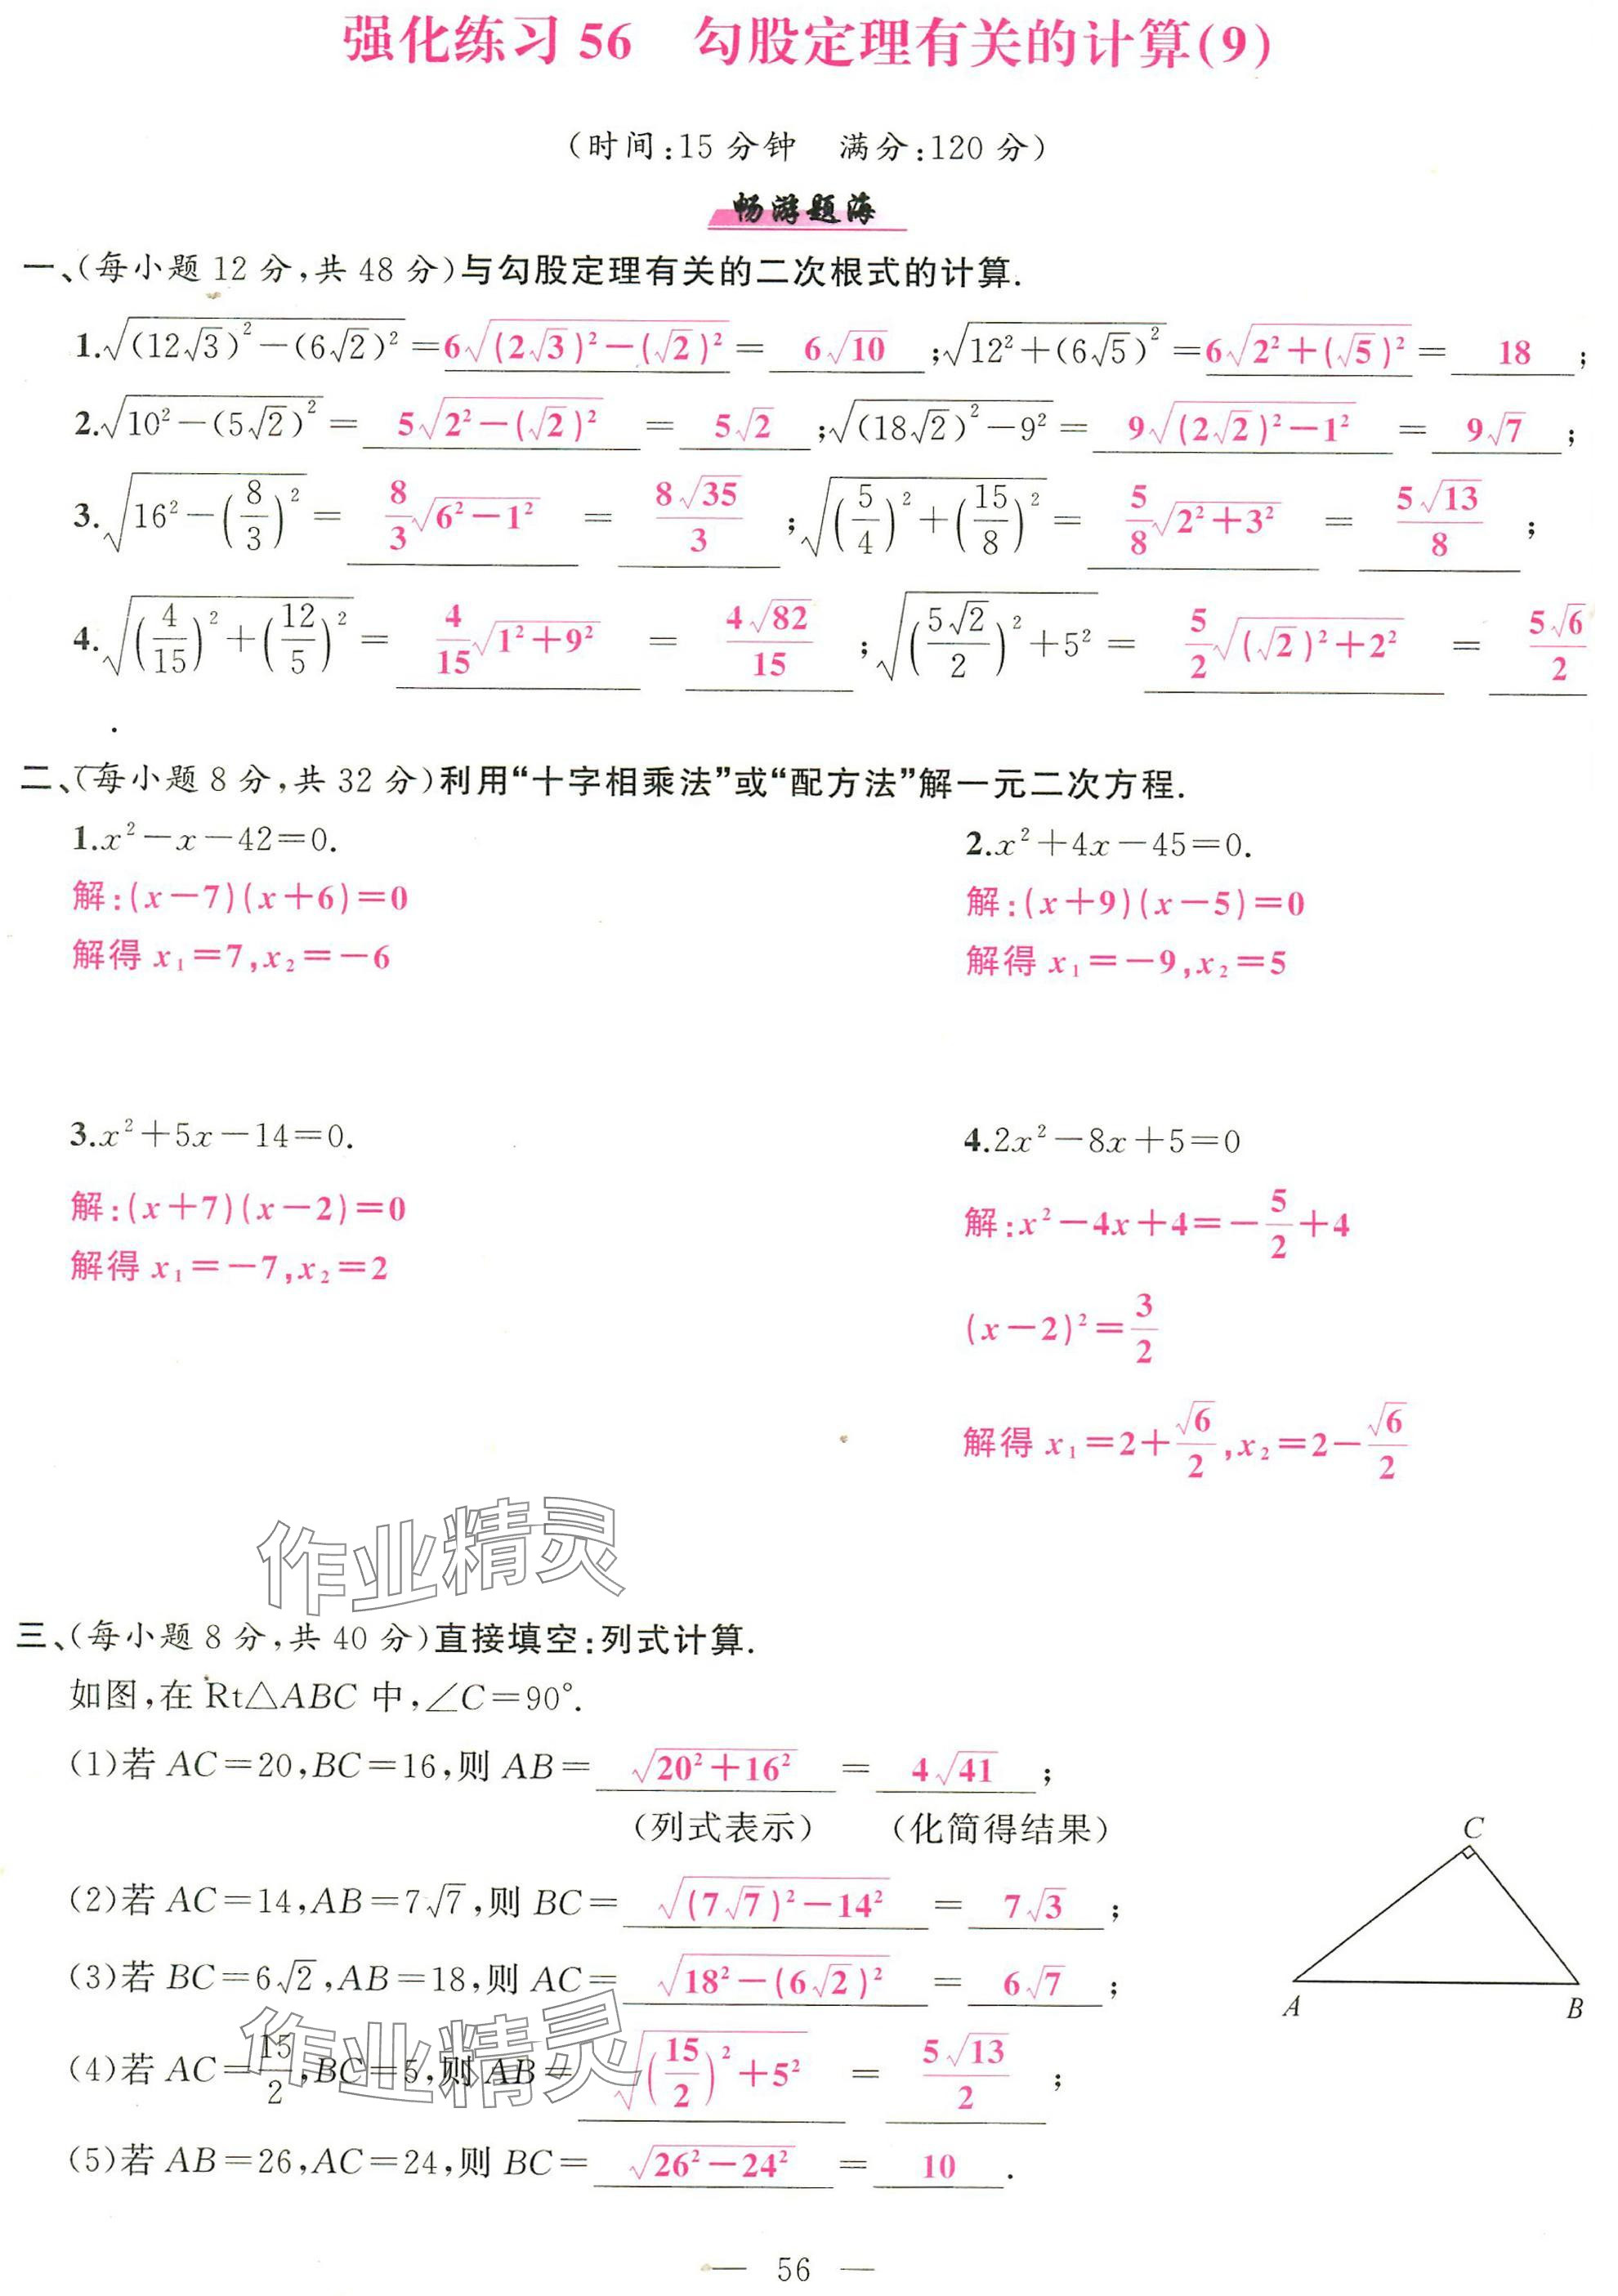 强化练习 56　勾股定理有关的计算(9)
(时间:15 分钟　满分:120 分)
畅游题海
一、(每小题 12 分,共 48 分)与勾股定理有关的二次根式的计算.
1.√((12√3)²-(6√2)²)=6√((2√3)²-(√2)²)=6√10;√(12²+(6√5)²)=6√(2²+(√5)²)=18;
2.√(10²-(5√2)²)=5√(2²-(√2)²)=5√2;√((18√2)²-9²)=9√((2√2)²-1²)=9√7;
3.√(16²-(8/3)²)=8/3√(6²-1²)=8√35/3;√((5/4)²+(15/8)²)=5/8√(2²+3²)=5√13/8;
4.√((4/15)²+(12/5)²)=4/15√(1²+9²)=4√82/15;√((5√2/2)²+5²)=5/2√((√2)²+2²)=5√6/2
.
二、(每小题 8 分,共 32 分)利用“十字相乘法”或“配方法”解一元二次方程.
1.x²-x-42=0.
解:(x-7)(x+6)=0
解得 x₁=7,x₂=-6
2.x²+4x-45=0.
解:(x+9)(x-5)=0
解得 x₁=-9,x₂=5
3.x²+5x-14=0.
解:(x+7)(x-2)=0
解得 x₁=-7,x₂=2
4.2x²-8x+5=0
解:x²-4x+4=-5/2+4
(x-2)²=3/2
解得 x₁=2+√6/2,x₂=2-√6/2
作业精灵
三、(每小题 8 分,共 40 分)直接填空:列式计算.
如图,在 Rt△ABC 中,∠C=90°.
(1)若 AC=20,BC=16,则 AB=√(20²+16²)=4√41;
(列式表示)　(化简得结果)
(2)若 AC=14,AB=7√7,则 BC=√((7√7)²-14²)=7√3;
(3)若 BC=6√2,AB=18,则 AC=√(18²-(6√2)²)=6√7;
(4)若 AC=15/2,BC=5,则 AB=√((15/2)²+5²)=5√13/2;
(5)若 AB=26,AC=24,则 BC=√(26²-24²)=10.
C
A
B
作业精灵
— 56 —